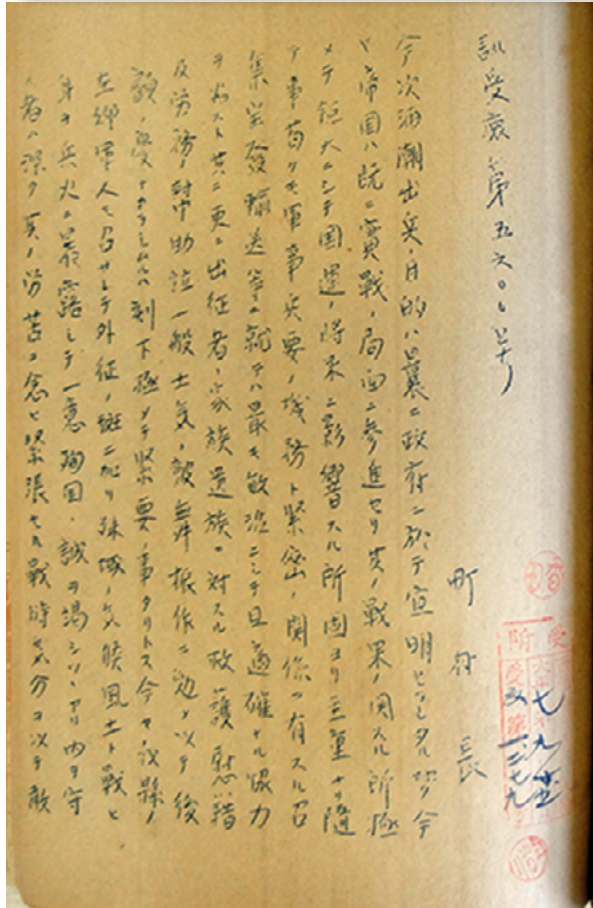 訓受庶第五六〇〇号
町村長
今次海外出兵ノ目的ハ曩ニ政府ニ於テ宣明セシタル如ク今
ヤ帝国ハ既ニ実戦ノ局面ニ参進セリ其ノ戦果ノ関スル所極
メテ絶大ニシテ国運ノ将来ニ影響スル所固ヨリ至重ナリ随
テ事苟クモ軍事要ノ機務ト緊密ノ関係ヲ有スル召
集宣発輸送等ニ就テハ最モ敏活ニシテ且適確ナル協力
ヲ共ニ更ニ出征者ノ家族遺族ニ対スル救護慰藉
及労務ノ一般士気ノ鼓舞振作ニ勉メ以テ後
顧ノ憂ナカラシムルハ刻下極メテ緊要ノ事タリトス今ヤ我縣ノ
在郷軍人モ召サレテ外征ノ班ニ加リ殊域ノ気候風土ト戦ヒ
身ヲ兵火ニ暴露シテ一意殉国ノ誠ヲ竭シツヽアリ内ヲ守
ル者ハ深ク其ノ労苦ヲ念ヒ緊張セル戦時気分ヲ以テ敵
受
所
七
九